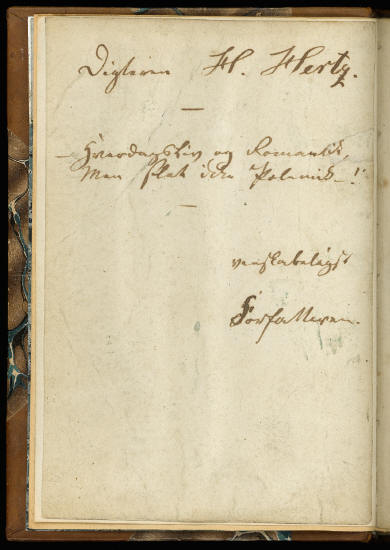 Digteren H. Hertz.
—
– Hverdagsliv og Romantik,
Men slet ikke Polemik –!"
—
venskabeligst
Forfatteren.